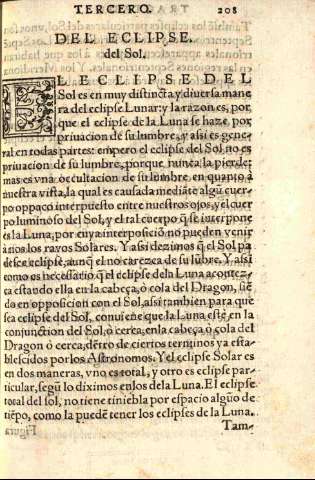 TERCERO. 208
DEL ECLIPSE
del Sol.
EL ECLIPSE DEL
Sol es en muy distincta y diuersa mane
ra del eclipse Lunar: y la razon es, por
que el eclipse de la Luna se haze por
priuacion de su lumbre, y assi es gene-
ral en todas partes: empero el eclipse del Sol no es
priuacion de su lumbre, porque nunca la pierde:
mas es vna occultacion de su lumbre en quanto à
nuestra vista, la qual es causada mediãte algũ cuer-
po oppaco interpuesto entre nuestros ojos, y el cuer
po luminoso del Sol, y el tal cuerpo q̃ se interpone
es la Luna, por cuya interposiciõ no pueden venir
à nos los rayos Solares. Y assi dezimos q̃ el Sol pa
desce eclipse, aunq̃ el no carezca de su lũbre. Y assi
como es necessario q̃ el eclipse dela Luna acontez-
ca estando ella en la cabeça, ò cola del Dragon, siẽ
do en opposicion con el Sol, assi tambien para que
sea eclipse del Sol, conuiene que la Luna estè en la
conjunction del Sol, ò cerca, en la cabeça ò cola del
Dragon ò cerca, dẽtro de ciertos terminos ya esta-
blescidos por los Astronomos. Y el eclipse Solar es
en dos maneras, vno es total, y otro es eclipse par-
ticular, segũ lo diximos en los de la Luna. El eclipse
total del sol, no tiene tiniebla por espacio algũo de
tiẽpo, como la puedẽ tener los eclipses de la Luna.
Tam-